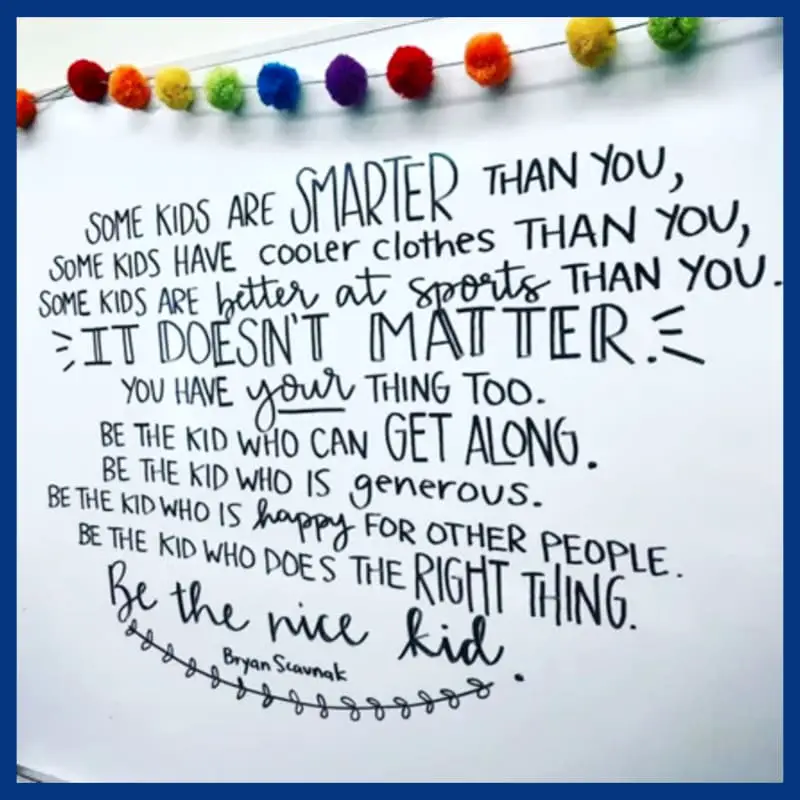 SOME KIDS ARE SMARTER THAN YOU,
SOME KIDS HAVE cooler clothes THAN YOU,
SOME KIDS ARE better at sports THAN YOU.
IT DOESN'T MATTER.
YOU HAVE your THING TOO.
BE THE KID WHO CAN GET ALONG.
BE THE KID WHO IS generous.
BE THE KID WHO IS happy FOR OTHER PEOPLE.
BE THE KID WHO DOES THE RIGHT THING.
Be the nice kid.
Bryan Scavnak